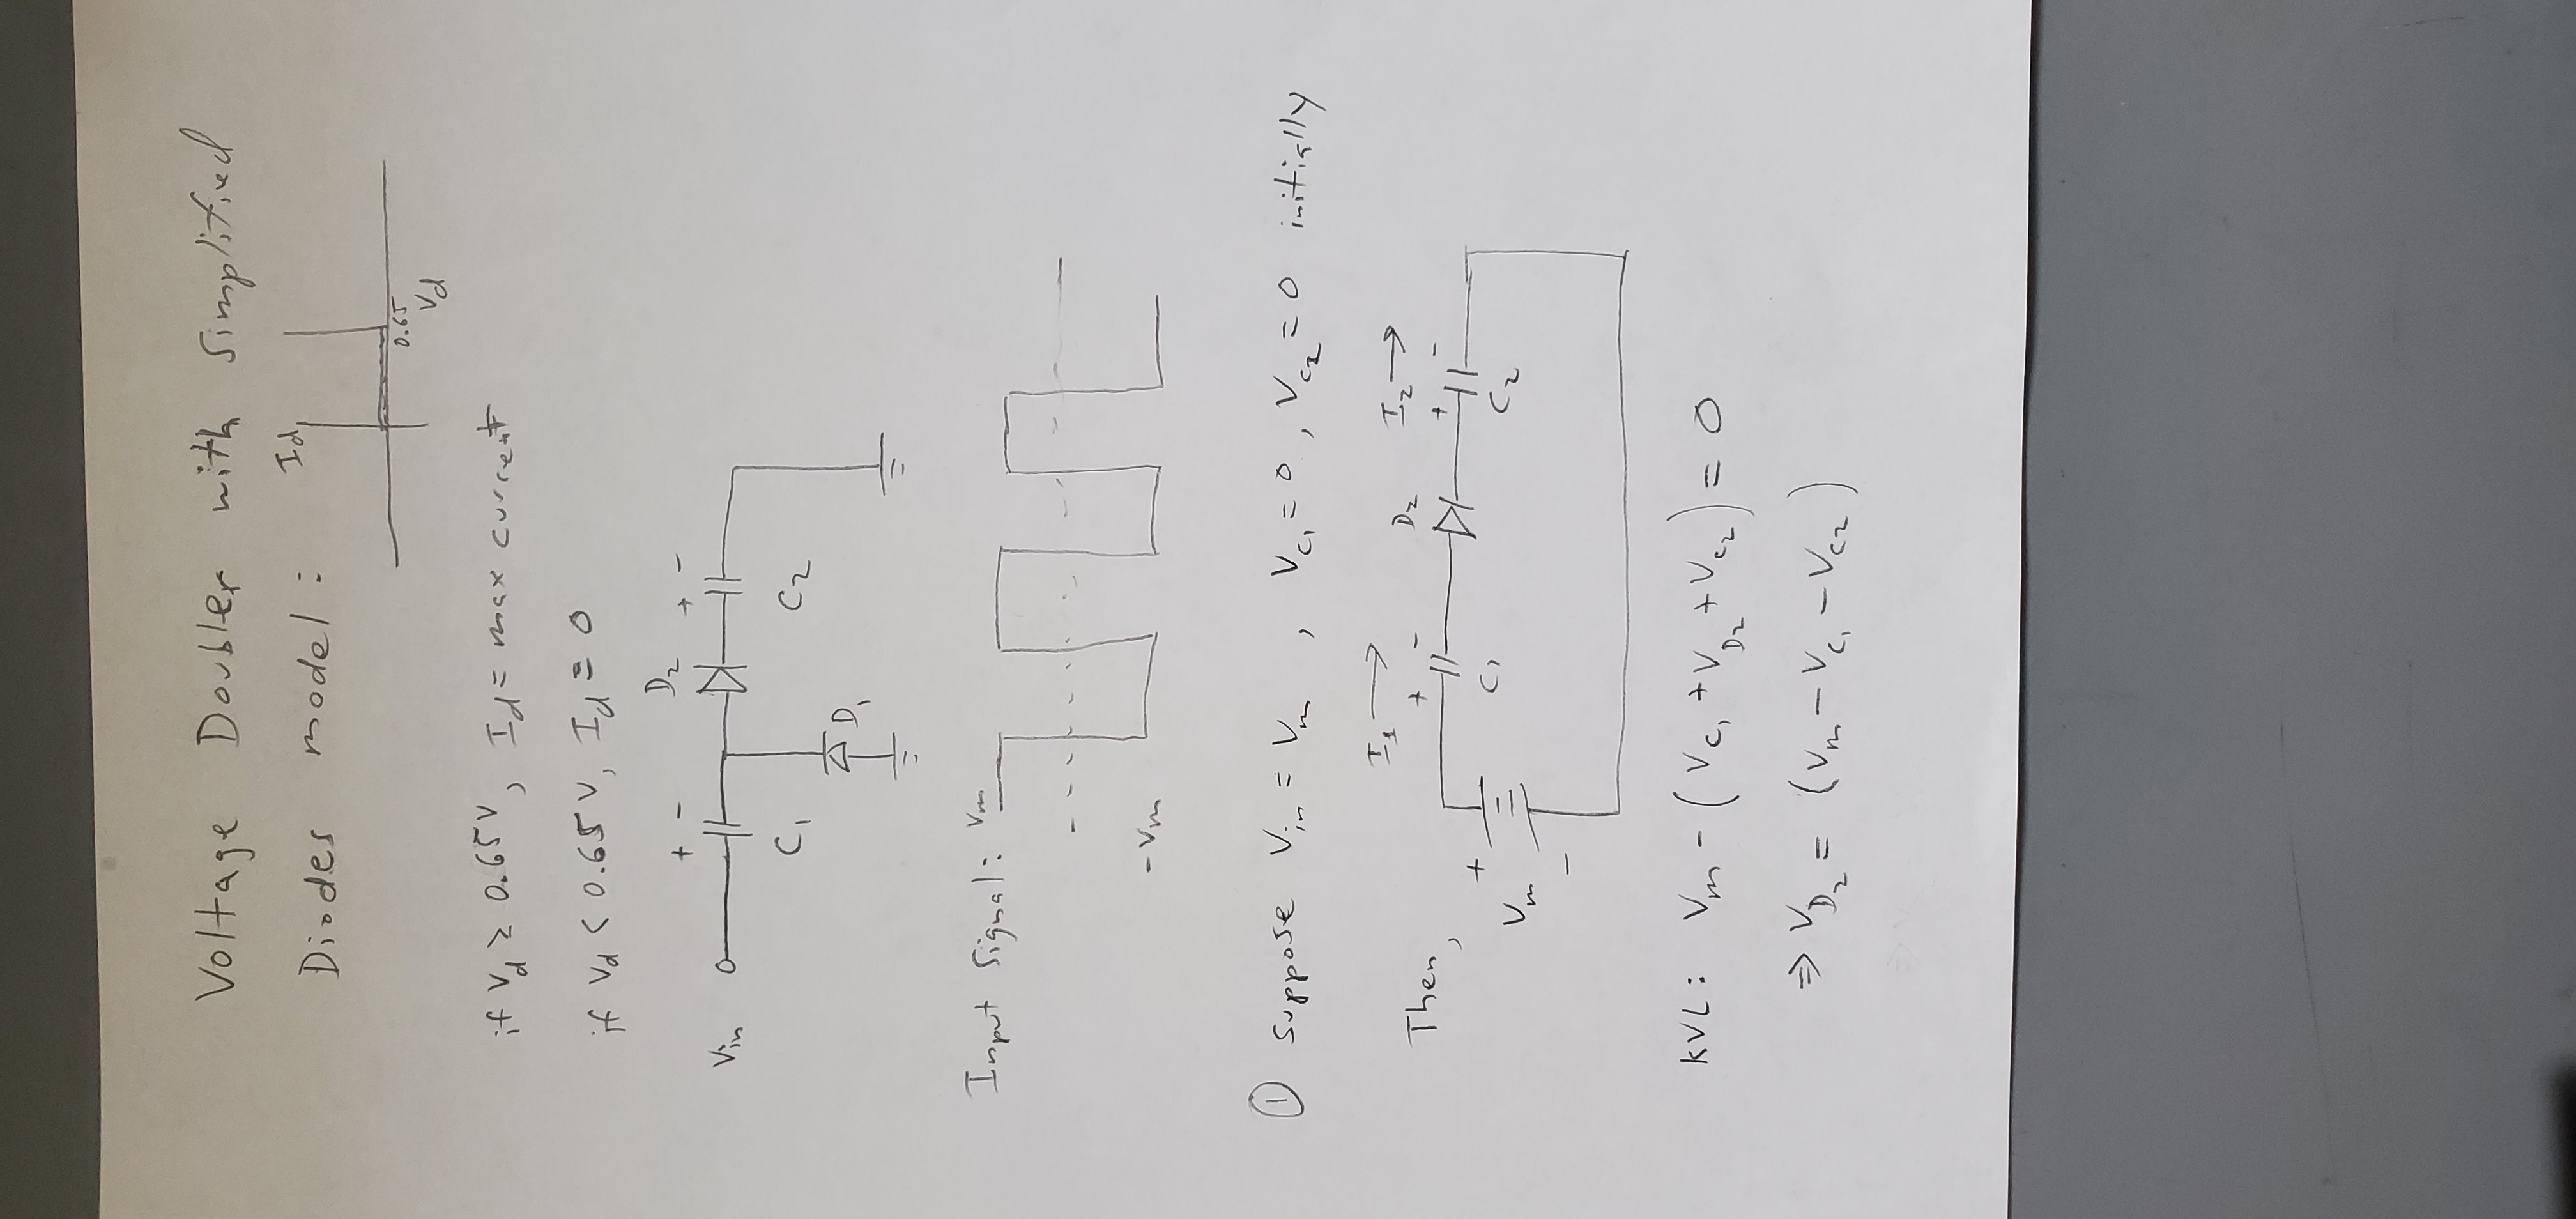 Voltage Doubler with simplified
Diodes model:
Id
0.65
Vd
if Vd ≥ 0.65V, Id = max current
if Vd < 0.65V, Id = 0
D2
+ - + -
Vin
C1 C2
D1
Input Signal: Vm
-Vm
① suppose Vin = Vm, Vc1 = 0, Vc2 = 0 initially
I1 → I2 →
D2
Then, + - + -
+
C1 C2
Vm
-
KVL: Vm - (Vc1 + VD2 + Vc2) = 0
⇒ VD2 = (Vm - Vc1 - Vc2)